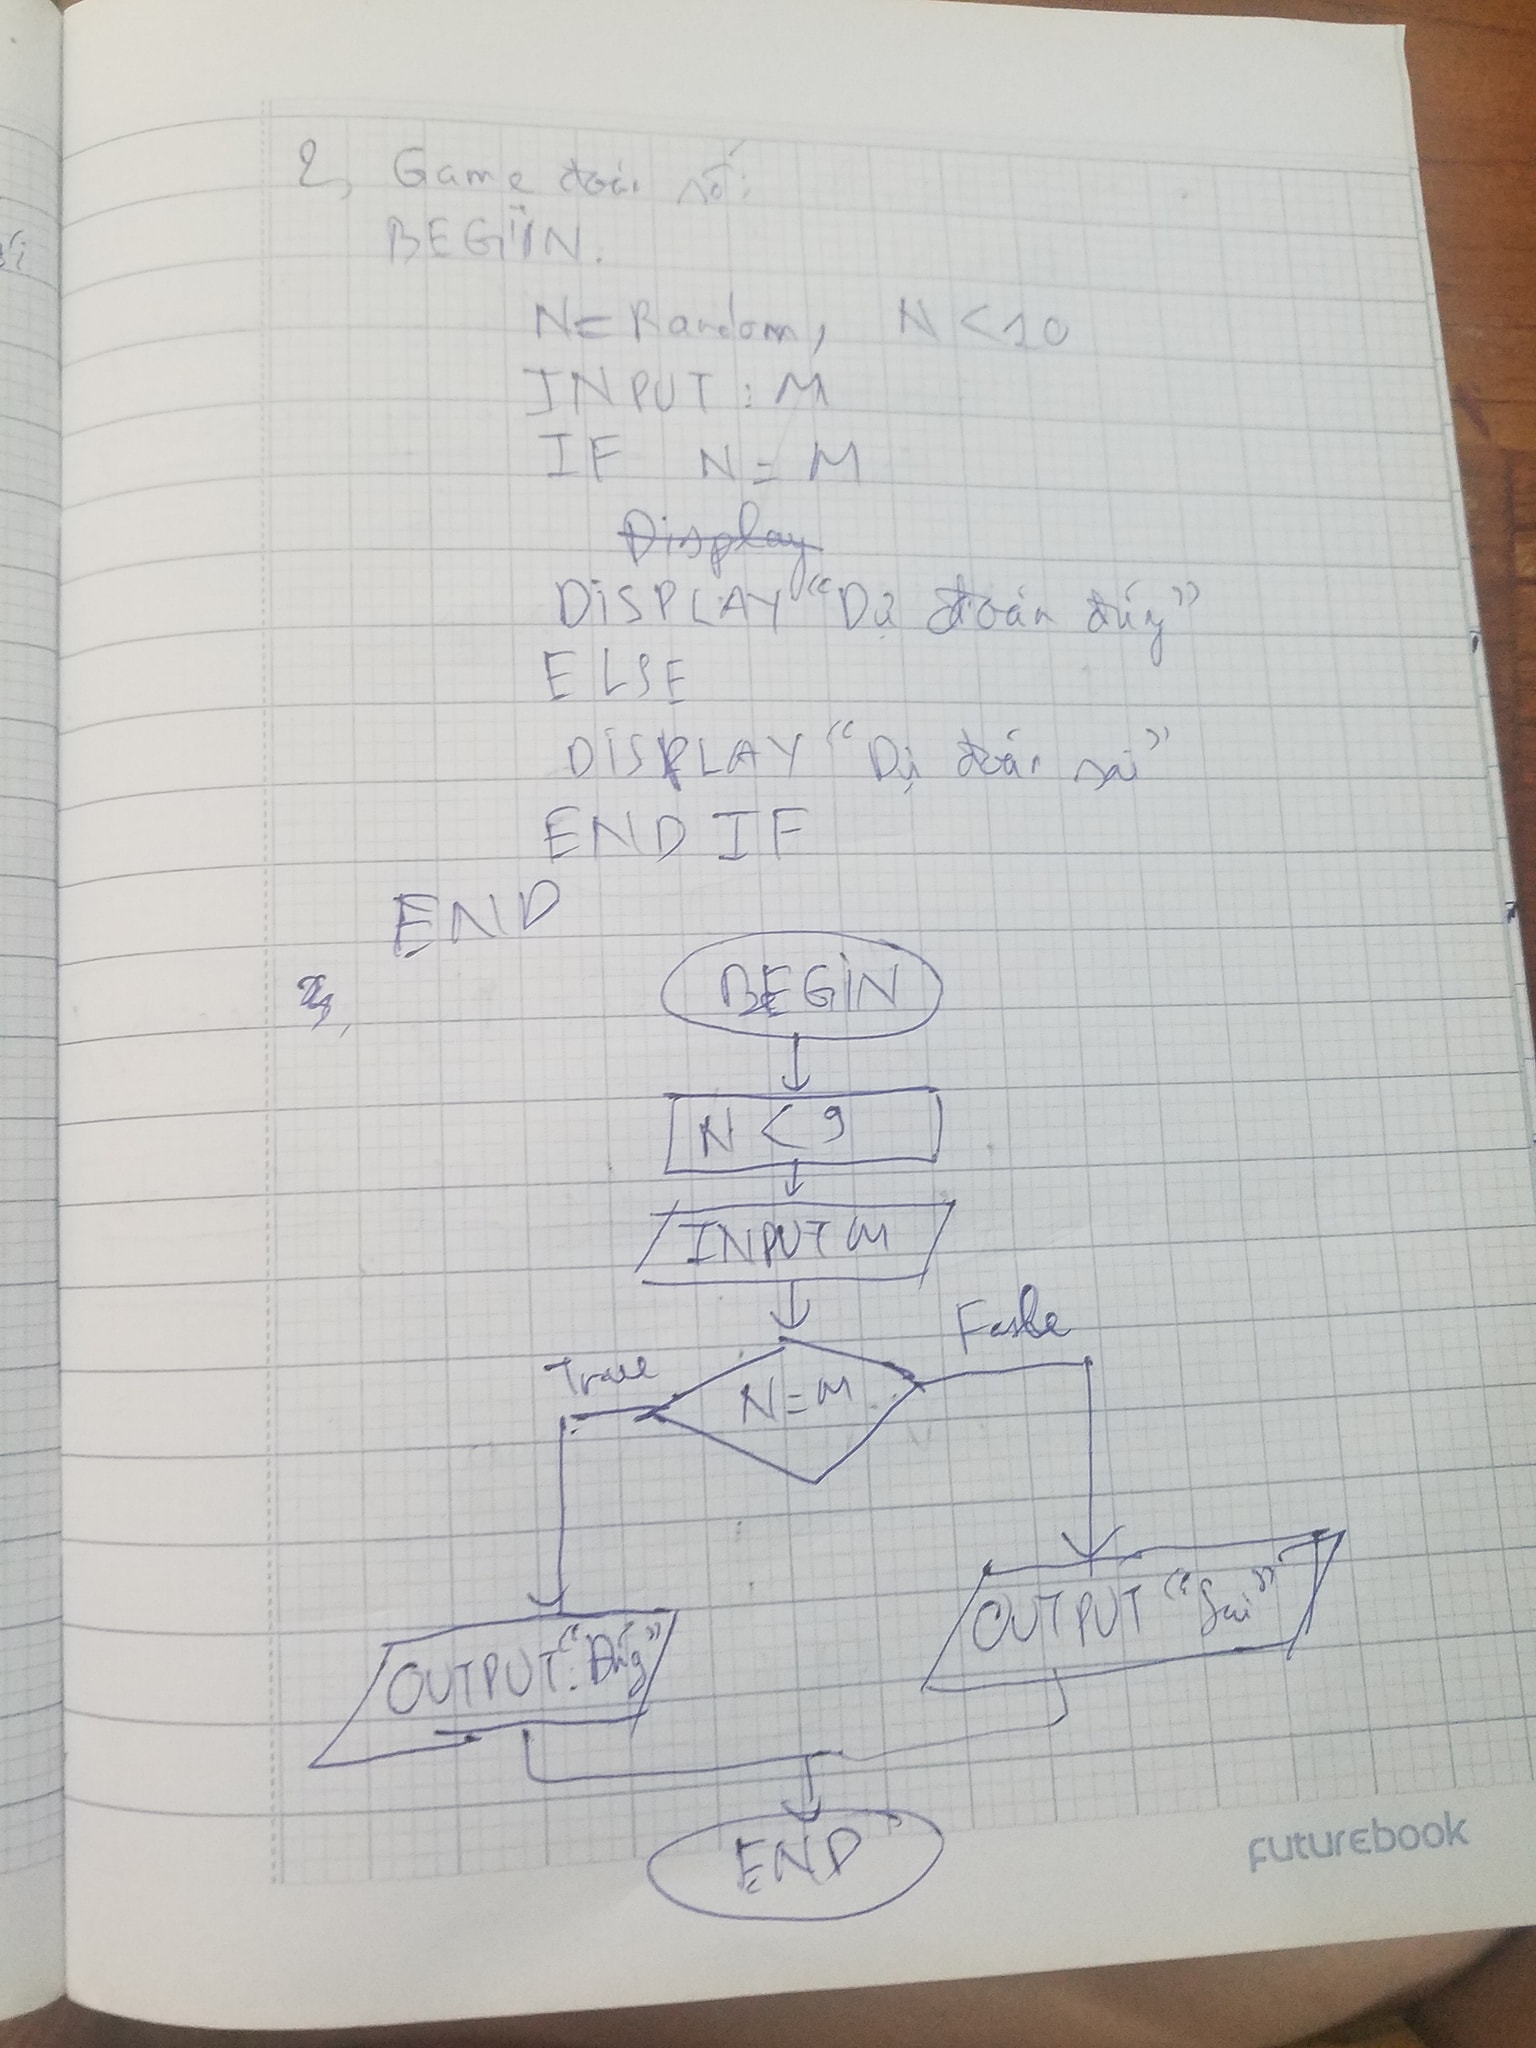 2, Game đoán số:
BEGIN.
N = Random, N < 10
INPUT : M
IF N = M
Display
DISPLAY "Dự đoán đúng"
ELSE
DISPLAY "Dự đoán sai"
END IF
END
BEGIN
N < 9
INPUT M
True
N = M
Fasle
OUTPUT: "Đúng"
OUTPUT "Sai"
END
futurebook